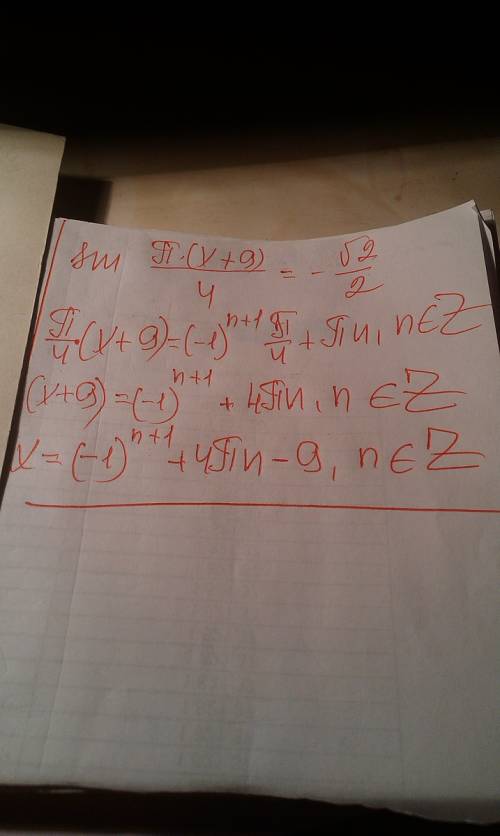 sin π·(x+9)/4 = -√2/2
π/4·(x+9)=(-1)^(n+1) π/4+πn, n∈Z
(x+9)=(-1)^(n+1)+4πn, n∈Z
x=(-1)^(n+1)+4πn-9, n∈Z